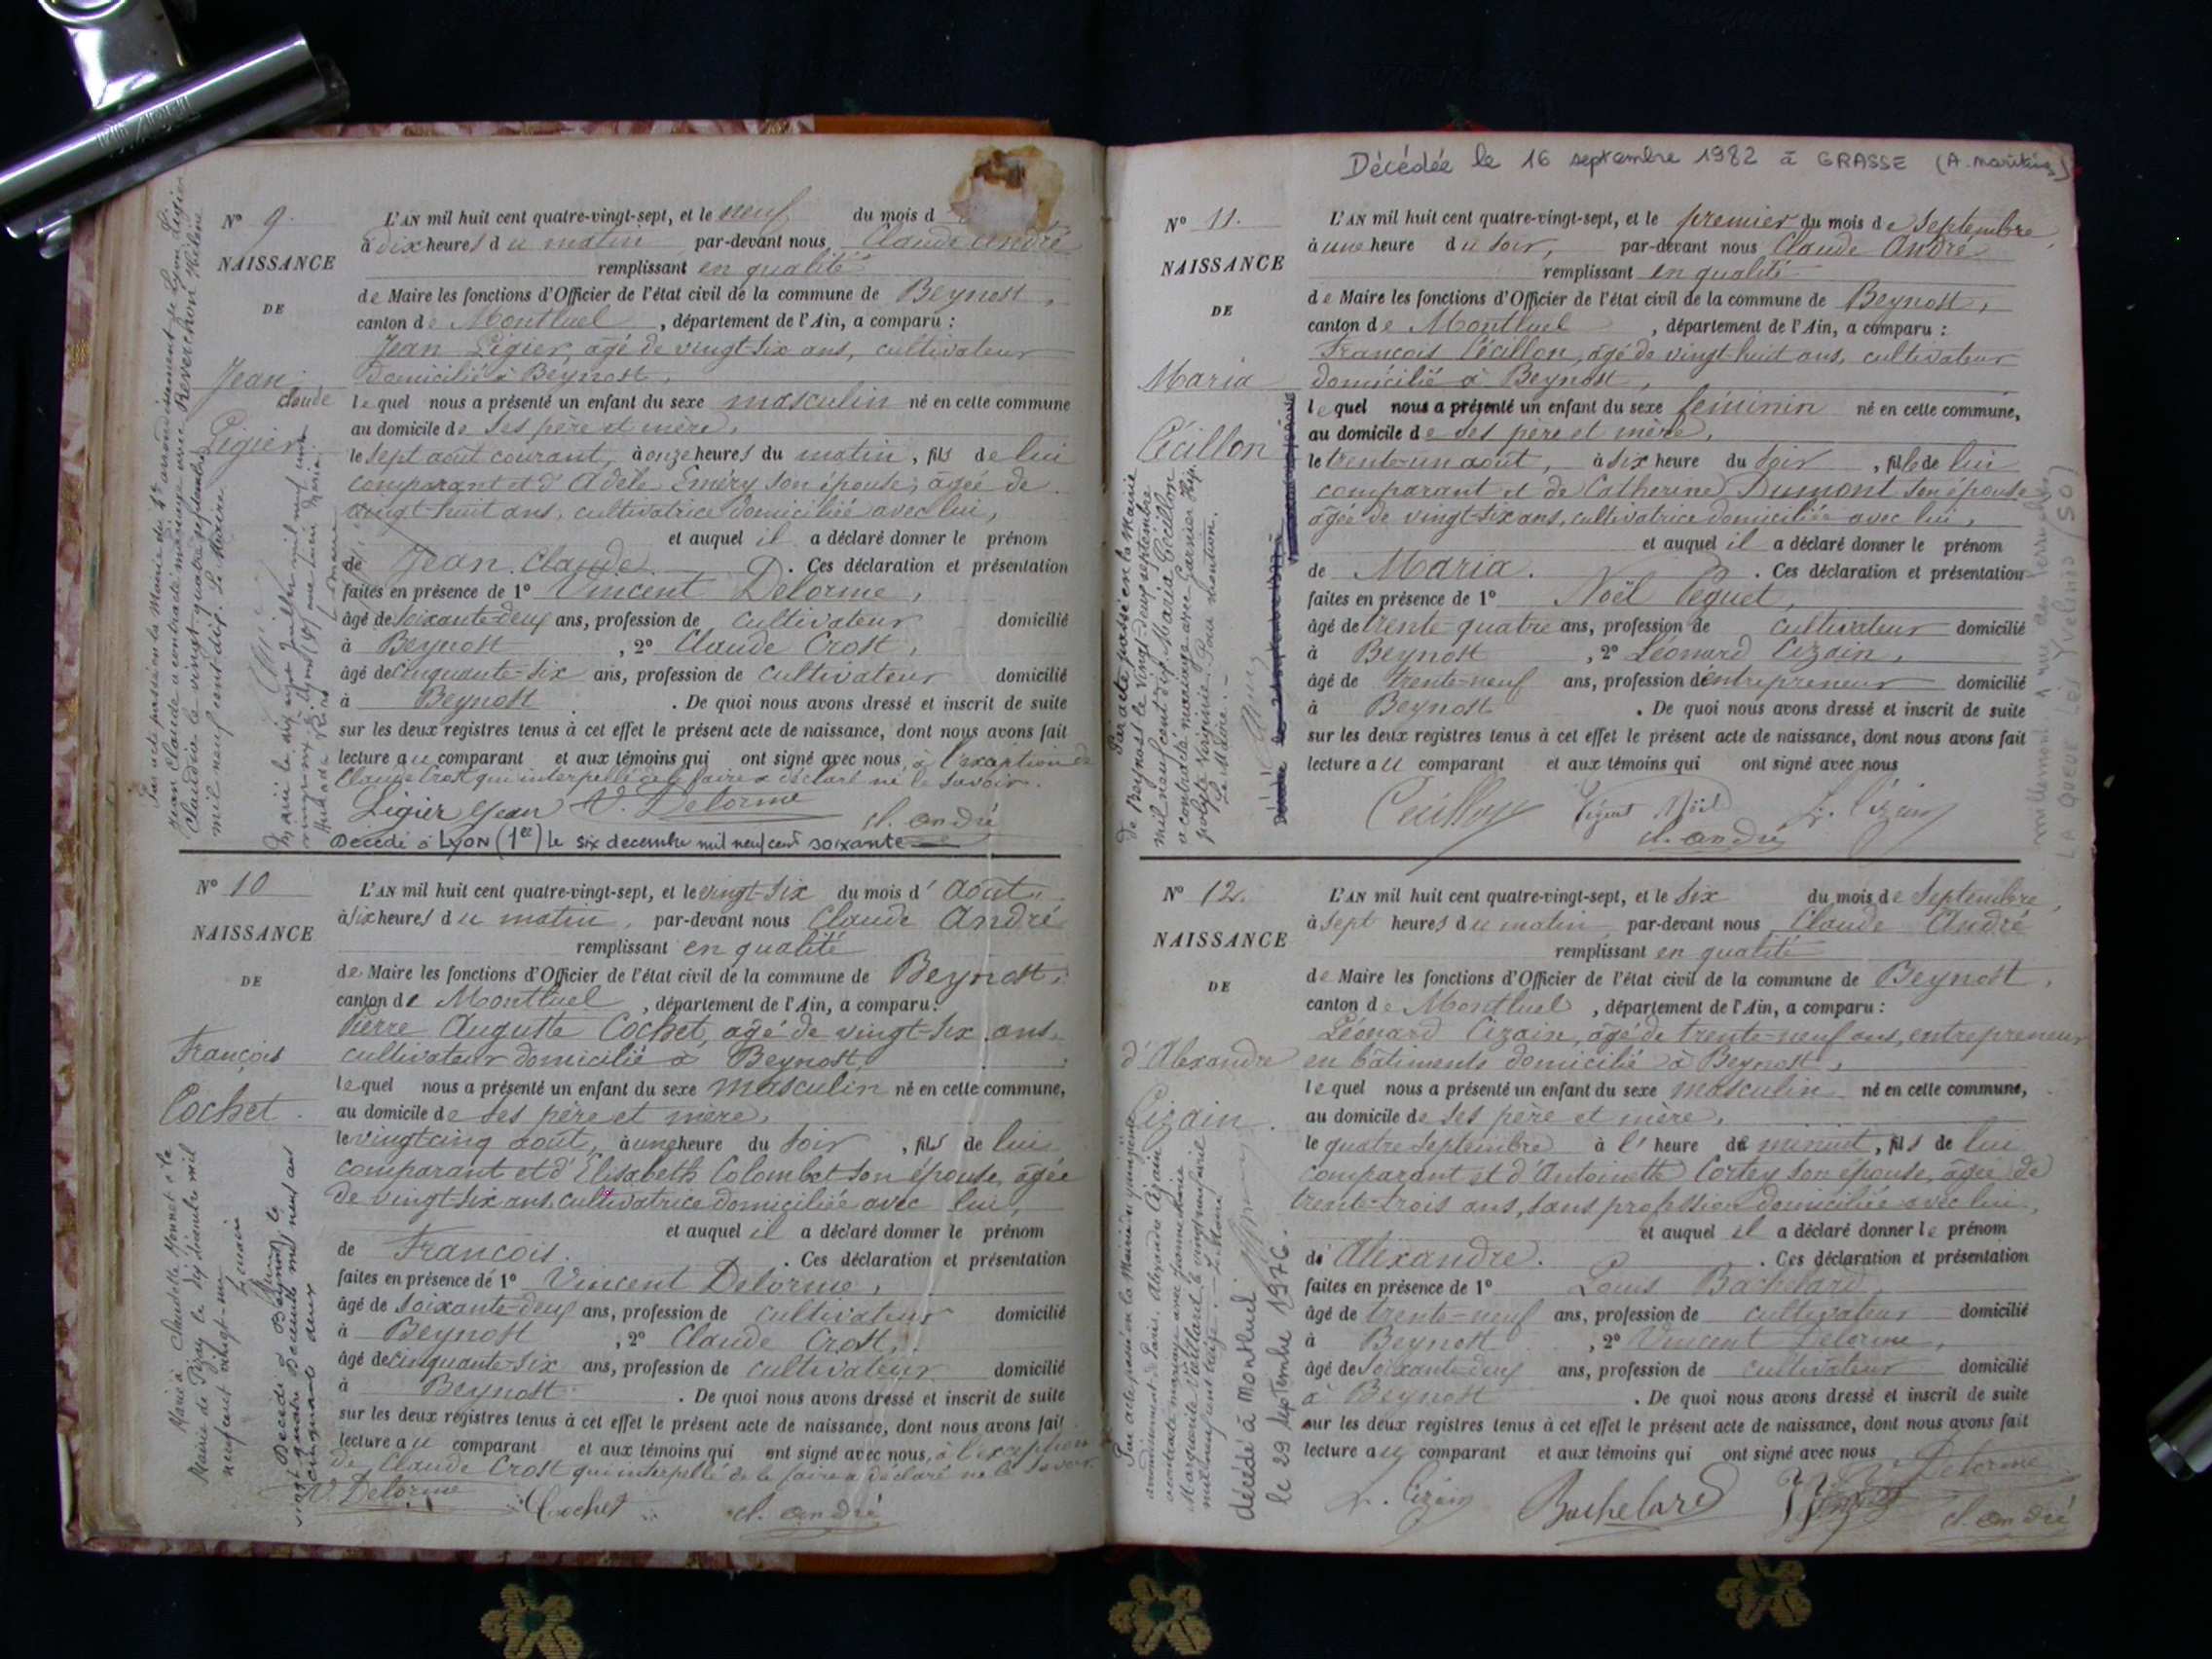 N° 9.
NAISSANCE
DE
Jean
Claude
Ligier
L'AN mil huit cent quatre-vingt-sept, et le neuf du mois d
à dix heures du matin par-devant nous, Claude André
remplissant en qualité
de Maire les fonctions d'Officier de l'état civil de la commune de Beynost,
canton de Montluel, département de l'Ain, a comparu :
Jean Ligier, âgé de vingt-six ans, cultivateur
domicilié à Beynost,
lequel nous a présenté un enfant du sexe masculin né en cette commune
au domicile de ses père et mère,
le sept août courant, à onze heures du matin, fils de lui
comparant et d'Adèle Eméry son épouse, âgée de
vingt-huit ans, cultivatrice domiciliée avec lui,
et auquel il a déclaré donner le prénom
de Jean Claude. Ces déclaration et présentation
faites en présence de 1° Vincent Delorme,
âgé de soixante-deux ans, profession de cultivateur domicilié
à Beynost, 2° Claude Crost,
âgé de cinquante-six ans, profession de cultivateur domicilié
à Beynost. De quoi nous avons dressé et inscrit de suite
sur les deux registres tenus à cet effet le présent acte de naissance, dont nous avons fait
lecture au comparant et aux témoins qui ont signé avec nous, à l'exception de
Claude Crost qui interpellé de le faire a déclaré ne le savoir.
Ligier Jean V. Delorme cl. andré
Décédé à LYON (1er) le six decembre mil neuf cent soixante
Par acte passé en la Mairie du 1er arrondissement de Lyon Ligier
Jean Claude a contracté mariage avec Reverchon Hélène
Claudia le vingt-quatre septembre
mil neuf cent dix. Le Maire
N° 10
NAISSANCE
DE
François
Cochet.
L'AN mil huit cent quatre-vingt-sept, et le vingt-six du mois d'août,
à six heures du matin, par-devant nous Claude André
remplissant en qualité
de Maire les fonctions d'Officier de l'état civil de la commune de Beynost,
canton de Montluel, département de l'Ain, a comparu :
Pierre Auguste Cochet, âgé de vingt-six ans
cultivateur domicilié à Beynost,
lequel nous a présenté un enfant du sexe masculin né en cette commune,
au domicile de ses père et mère,
le vingt cinq août, à une heure du soir, fils de lui
comparant et d'Elisabeth Colombet son épouse, âgée
de vingt-six ans, cultivatrice domiciliée avec lui,
et auquel il a déclaré donner le prénom
de François. Ces déclaration et présentation
faites en présence de 1° Vincent Delorme,
âgé de soixante-deux ans, profession de cultivateur domicilié
à Beynost, 2° Claude Crost,
âgé de cinquante-six ans, profession de cultivateur domicilié
à Beynost. De quoi nous avons dressé et inscrit de suite
sur les deux registres tenus à cet effet le présent acte de naissance, dont nous avons fait
lecture au comparant et aux témoins qui ont signé avec nous, à l'exception
de Claude Crost qui interpellé de le faire a déclaré ne le savoir
V. Delorme Cochet cl. andré
Marié à Claudette Monnet à la
Mairie de Pizay le dix décembre mil
neuf cent vingt-un
Décédé à Beynost le
vingt quatre Décembre mil neuf cent
cinquante deux
Décédée le 16 septembre 1982 à GRASSE (A. maritimes)
N° 11.
NAISSANCE
DE
Maria
Cécillon
L'AN mil huit cent quatre-vingt-sept, et le premier du mois de Septembre,
à une heure du soir, par-devant nous Claude André
remplissant en qualité
de Maire les fonctions d'Officier de l'état civil de la commune de Beynost,
canton de Montluel, département de l'Ain, a comparu :
François Cécillon, âgé de vingt-huit ans, cultivateur
domicilié à Beynost,
lequel nous a présenté un enfant du sexe féminin né en cette commune,
au domicile de ses père et mère,
le trente-un août, à six heure du soir, fille de lui
comparant et de Catherine Dumont son épouse
âgée de vingt-six ans, cultivatrice domiciliée avec lui,
et auquel il a déclaré donner le prénom
de Maria. Ces déclaration et présentation
faites en présence de 1° Noël Péguet,
âgé de trente-quatre ans, profession de cultivateur domicilié
à Beynost, 2° Léonard Cizain,
âgé de trente-neuf ans, profession d'entrepreneur domicilié
à Beynost. De quoi nous avons dressé et inscrit de suite
sur les deux registres tenus à cet effet le présent acte de naissance, dont nous avons fait
lecture au comparant et aux témoins qui ont signé avec nous
Cécillon Péguet Noël L. Cizain
cl. andré
Par acte passé en la Mairie
de Beynost le vingt-deux septembre
mil neuf cent dix Maria Cécillon
a contracté mariage avec Garnier Hip-
polyte Virginie. Pour mention.
Le Maire.
N° 12.
NAISSANCE
DE
d'Alexandre
Cizain.
L'AN mil huit cent quatre-vingt-sept, et le six du mois de Septembre,
à sept heures du matin par-devant nous Claude André
remplissant en qualité
de Maire les fonctions d'Officier de l'état civil de la commune de Beynost,
canton de Montluel, département de l'Ain, a comparu :
Léonard Cizain, âgé de trente-neuf ans, entrepreneur
en bâtiments domicilié à Beynost,
lequel nous a présenté un enfant du sexe masculin né en cette commune,
au domicile de ses père et mère,
le quatre Septembre à l'heure de minuit, fils de lui
comparant et d'Antoinette Cortey son épouse, âgée de
trente-trois ans, sans profession domiciliée avec lui,
et auquel il a déclaré donner le prénom
d'Alexandre. Ces déclaration et présentation
faites en présence de 1° Louis Bachelard
âgé de trente-neuf ans, profession de cultivateur domicilié
à Beynost, 2° Vincent Delorme,
âgé de soixante-deux ans, profession de cultivateur domicilié
à Beynost. De quoi nous avons dressé et inscrit de suite
sur les deux registres tenus à cet effet le présent acte de naissance, dont nous avons fait
lecture au comparant et aux témoins qui ont signé avec nous
L. Cizain Bachelard V. Delorme
cl. andré
décédé à Montluel
le 29 septembre 1976.